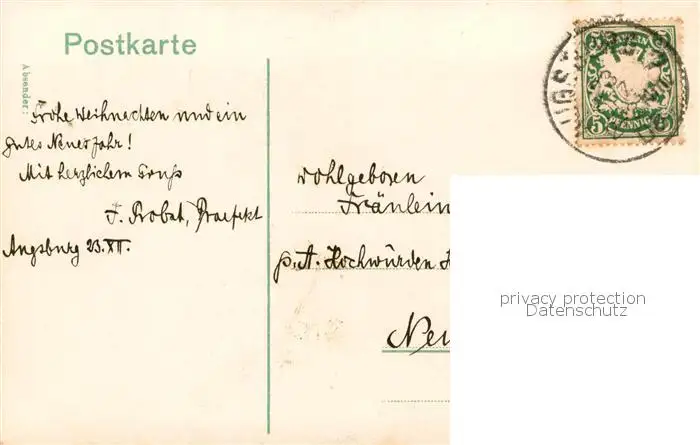 Postkarte
Absender:
Frohe Weihnachten und ein
gutes Neues Jahr!
Mit herzlichem Gruß
J. Probst, Praefekt
Augsburg 23.XII.
BAYERN
5 5
PFENNIG
Wohlgeboren
Fräulein
p. A. Hochwürden H
Neu
privacy protection
Datenschutz